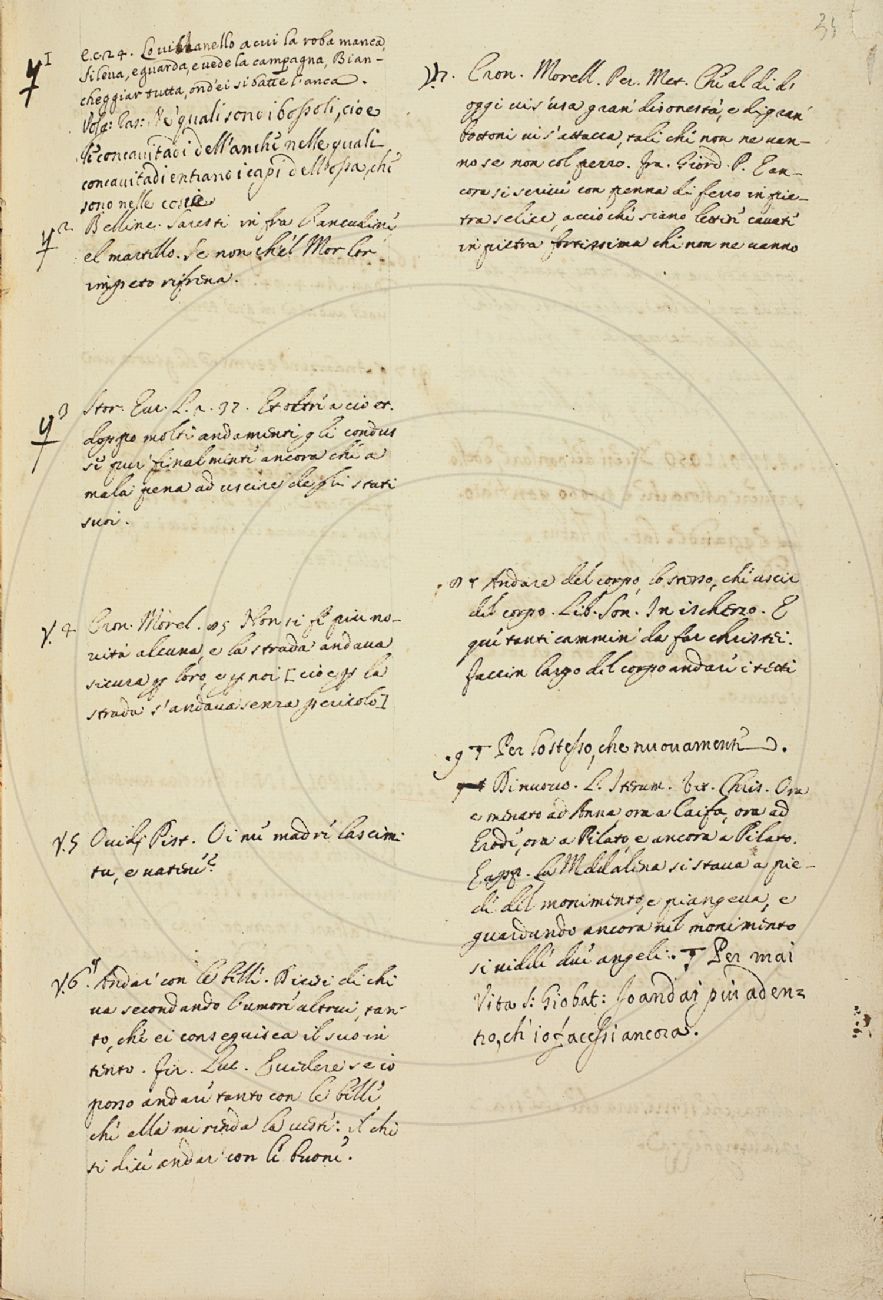 35
1 e.c. 24. Lo villanello a cui la roba manca,
Si leva, e guarda, e vede la campagna, Bian-
cheggiar tutta, ond'ei si batte l'anca.
Volg: Ras: Ve' quali sono i bossoli, cioè
le concavitadi dell'anche nelle quali
concavitadi entrano i capi dell'ossa, che
sono nelle coscie
2 Bellinc. Saresti in fra l'ancudine
e'l martello. Se non che'l Mor lor
impeto rifrena.
3 Stor. Eur. L. 2. 37. Et oltre a ciò et.
doppo molti andamenti, gli condus
se pur finalmente ancora che a
mala pena ad uscire degli stati
suoi.
V. 4 Cron. Morel. 85 Non si fe più no-
vità alcuna, e la strada andava
sicura p loro, e p noi [cioè p la
strada s'andava senza pericolo]
V. 5 Ovid. Pist. Oi me madre lascimi
tu, e vatene?
V. 6 Andar con le belle. Dicesi di chi
va secondando l'umore altrui, tan-
to, che ei conseguisca il suo in
tento. Fir. Luc. Evidere se io
posso andare tanto con le belle
che ella mi renda la veste: il che
si dice andar con le buone.
7. Cron. Morell. Per. Met. Che al dì di
oggi vi s'usa gran disonestà, e di gran
bottoni vi s'attacca, tali che non ne van-
no se non col ferro. fra. Giord. P. E an-
cora si scrive con penna di ferro in pie-
tra selice, acciò che sieno lettere cavate
in pietra fortissima che non ne vanno
8 Andare del corpo, lo stesso, che uscir
del corpo. Lib. Son. In ischerzo. E
qui tanti cammin da far christei.
Faccin largo del corpo andare i tetti
9 Per lo stesso, che nuovamente.
Di nuovo. L. Iterum. Vit. Chris. Ora
e menato ad Anna, ora a Caifa, ora ad
Erode, ora a Pilato, e ancora a Pilato.
E app. La Maddalena si stava a pie-
di del monimento, e piangeva, e
guardando ancora nel monimento
si vidde due angeli. Per mai
Vita S. Gio bat: Io andai più aden=
tro, ch'io facessi ancora.